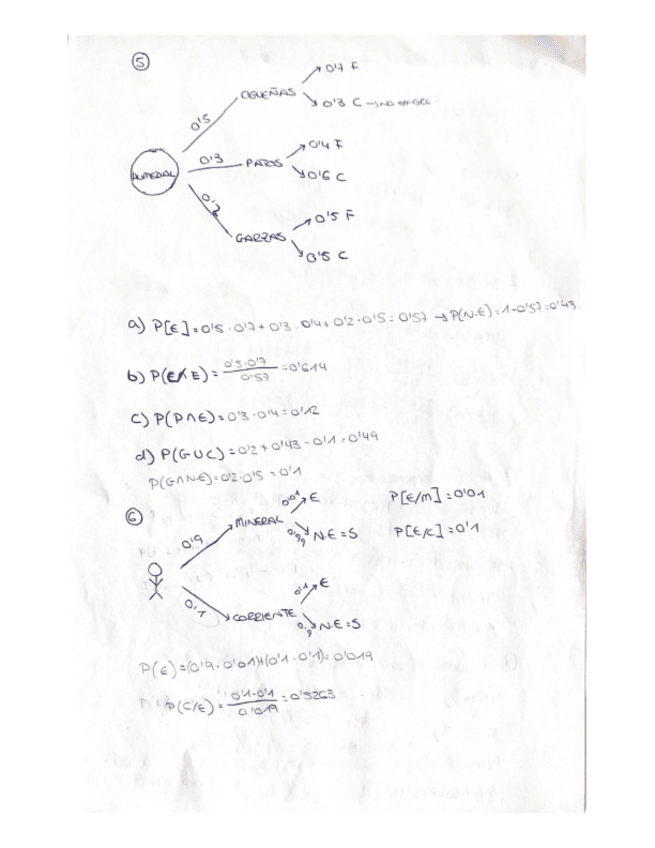 5
0'7 F
CIGUEÑAS
0'3 C → no
0'5
0'4 F
HUMEDAL 0'3 PATOS
0'6 C
0'2
0'5 F
GARZAS
0'5 C
a) P[E] = 0'5 · 0'7 + 0'3 · 0'4 + 0'2 · 0'5 = 0'57 → P(N.E) = 1 - 0'57 = 0'43
b) P( /E) = 0'5·0'7 / 0'57 = 0'614
c) P(P∩E) = 0'3 · 0'4 = 0'12
d) P(G∪C) = 0'2 + 0'43 - 0'1 = 0'49
P(G∩N.E) = 0'2·0'5 = 0'1
6
0'01 E P[E/M] = 0'01
MINERAL
0'9 0'99 N.E = S P[E/C] = 0'1
0'1 E
0'1 CORRIENTE
0'9 N.E = S
P(E) = (0'9 · 0'01) + (0'1 · 0'1) = 0'019
P(C/E) = 0'1·0'1 / 0'019 = 0'5263